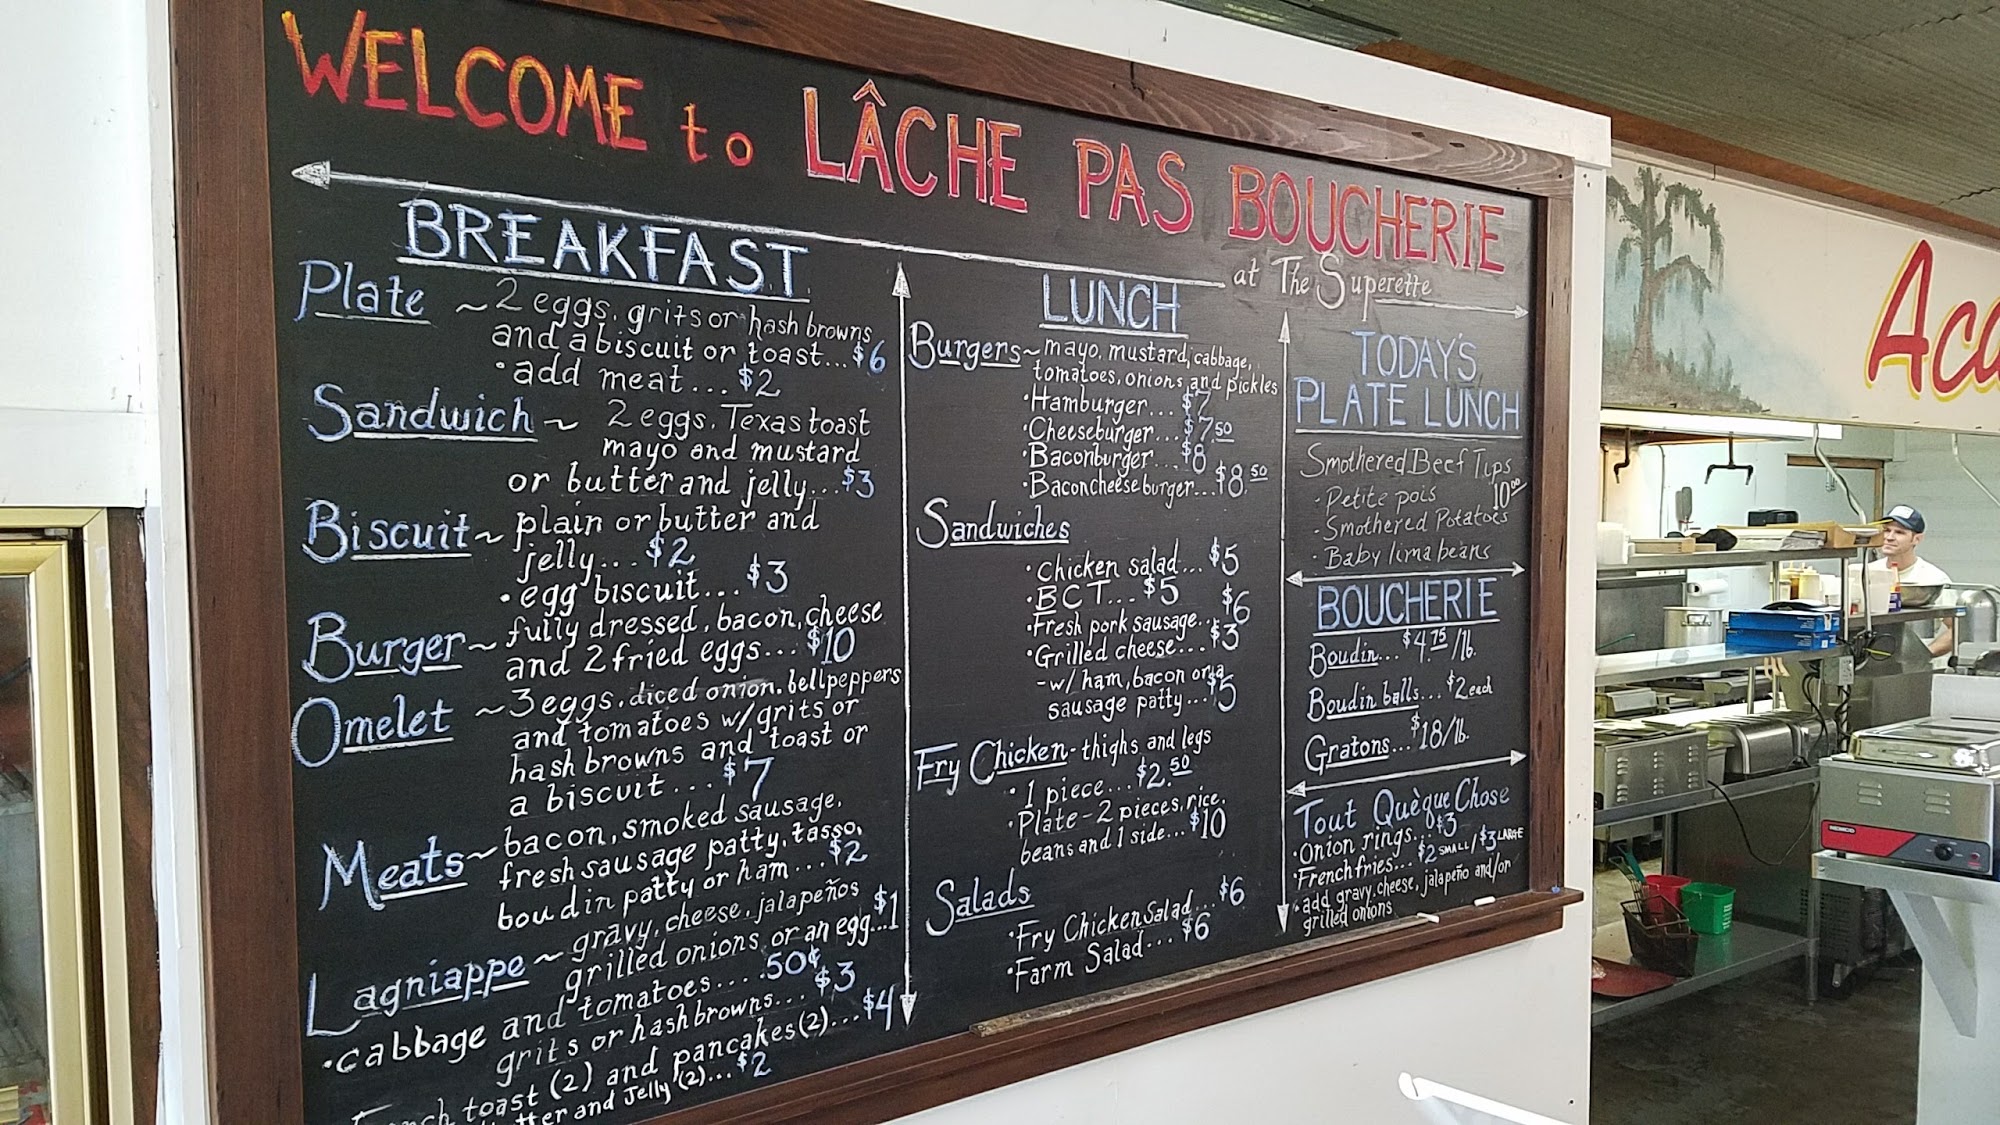 WELCOME to LÂCHE PAS BOUCHERIE
at The Superette
BREAKFAST
Plate ~ 2 eggs, grits or hash browns
and a biscuit or toast... $6
• add meat... $2
Sandwich ~ 2 eggs, Texas toast
mayo and mustard
or butter and jelly... $3
Biscuit ~ plain or butter and
jelly... $2
• egg biscuit... $3
Burger ~ fully dressed, bacon, cheese
and 2 fried eggs... $10
Omelet ~ 3 eggs, diced onion, bell peppers
and tomatoes w/ grits or
hash browns and toast or
a biscuit... $7
Meats ~ bacon, smoked sausage,
fresh sausage patty, tasso,
boudin patty or ham... $2
Lagniappe ~ gravy, cheese, jalapeños
grilled onions or an egg... $1
• cabbage and tomatoes.... 50¢
grits or hash browns... $3
French toast (2) and pancakes (2)... $4
and Jelly (2)... $2
LUNCH
Burgers ~ mayo, mustard, cabbage,
tomatoes, onions and pickles
• Hamburger... $7
• Cheeseburger... $7.50
• Baconburger... $8
• Baconcheeseburger... $8.50
Sandwiches
• Chicken salad... $5
• BCT... $5
• Fresh pork sausage... $6
• Grilled cheese... $3
- w/ ham, bacon or a
sausage patty... $5
Fry Chicken - thighs and legs
• 1 piece... $2.50
• Plate - 2 pieces, rice,
beans and 1 side... $10
Salads
• Fry Chicken Salad... $6
• Farm Salad... $6
TODAY'S
PLATE LUNCH
Smothered Beef Tips
• Petite pois 10.00
• Smothered Potatoes
• Baby lima beans
BOUCHERIE
Boudin... $4.75/lb.
Boudin balls... $2 each
Gratons... $18/lb.
Tout Quèque Chose
• Onion rings... $3
• French fries... $2 SMALL / $3 LARGE
• add gravy, cheese, jalapeño and/or
grilled onions
Aca
NEMCO